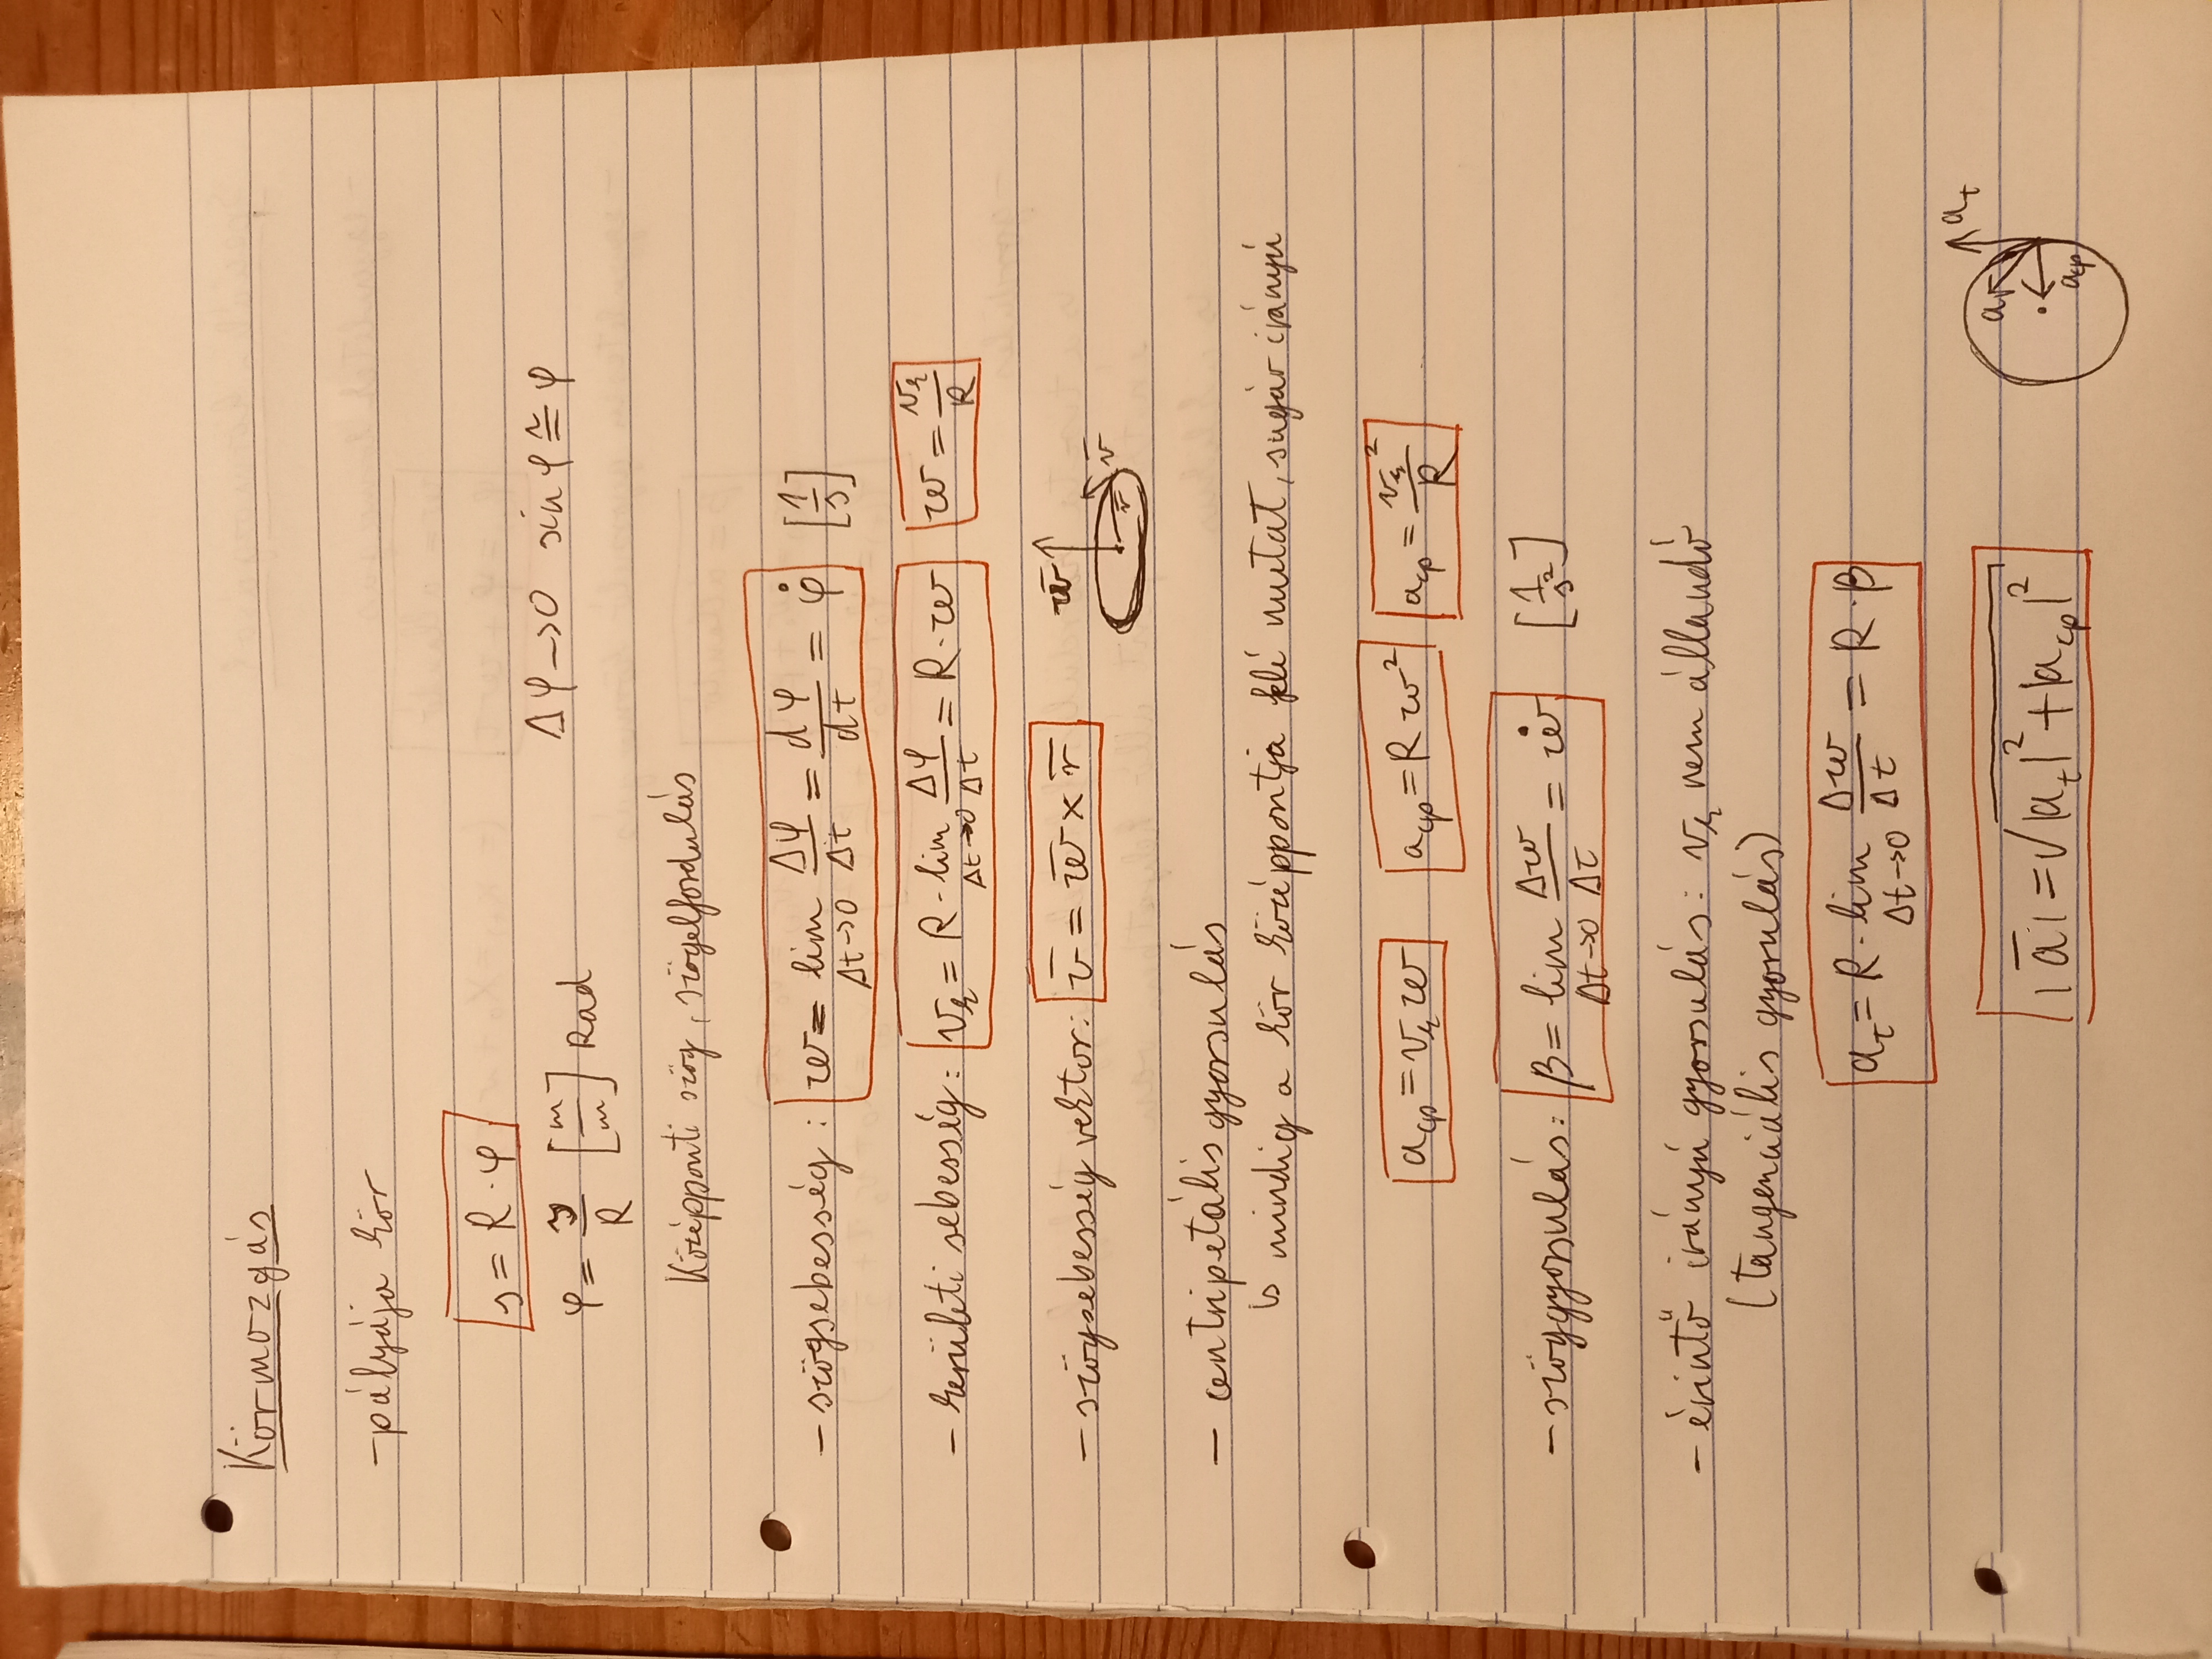 Körmozgás
-pályája kör
s = R · φ
φ = s/R [m/m] Rad
Δφ→0 sin φ ≅ φ
Középponti szög, szögelfordulás
- szögsebesség: ω = lim Δt→0 Δφ/Δt = dφ/dt = φ̇ [1/s]
- kerületi sebesség: v_k = R · lim Δt→0 Δφ/Δt = R · ω ω = v_k/R
- szögsebesség vektor: v̄ = ω̄ × r̄
ω̄ r̄ v̄
- centripetális gyorsulás
↳ mindig a kör középpontja felé mutat, sugár irányú
a_cp = v_k ω a_cp = R ω² a_cp = v_k²/R
- szöggyorsulás: β = lim Δt→0 Δω/Δt = ω̇ [1/s²]
- érintő irányú gyorsulás: v_k nem állandó
(tangenciális gyorulás)
a_t = R · lim Δt→0 Δω/Δt = R · β
|ā| = √|a_t|² + |a_cp|²
a_t a a_cp